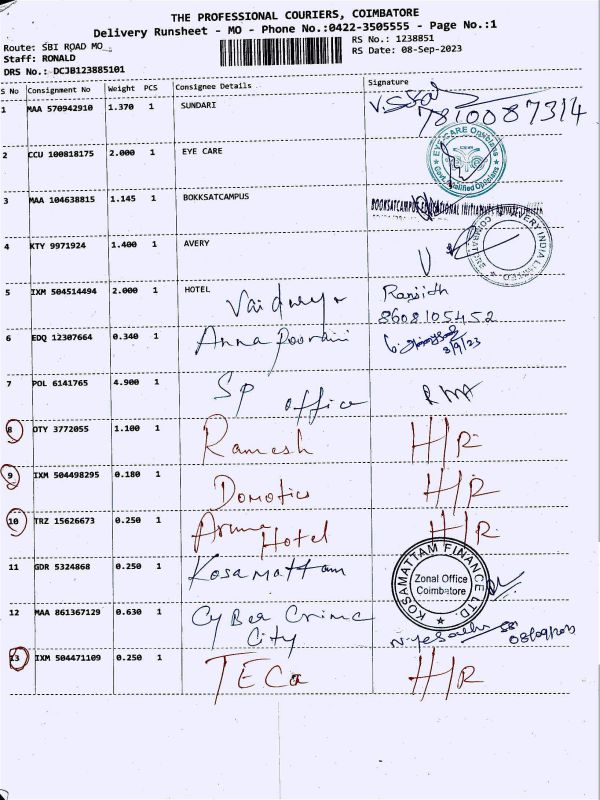 THE PROFESSIONAL COURIERS, COIMBATORE
Delivery Runsheet - MO - Phone No.:0422-3505555 - Page No.:1
Route: SBI ROAD MO
RS No.: 1238851
Staff: RONALD
RS Date: 08-Sep-2023
DRS No.: DCJB123885101
S No Consignment No Weight PCS Consignee Details Signature
1 MAA 570942910 1.370 1 SUNDARI
7810087314
2 CCU 100818175 2.000 1 EYE CARE
EYE CARE Opticians
Govt. Qualified Opticians
3 MAA 104638815 1.145 1 BOKKSATCAMPUS
BOOKSATCAMPUS EDUCATIONAL INITIATIVES PRIVATE LIMITED
4 KTY 9971924 1.400 1 AVERY
AVERY INDIA LIMITED
5 IXM 504514494 2.000 1 HOTEL
Ranjith
8608105452
6 EDQ 12307664 0.340 1 Anna Poorani
8/9/23
7 POL 6141765 4.900 1 SP office
8 OTY 3772055 1.100 1 Ramesh H/R
9 IXM 504498295 0.180 1 Domotics H/R
10 TRZ 15626673 0.250 1 Aruna Hotel H/R
11 GDR 5324868 0.250 1 Kosamattam
KOSAMATTAM FINANCE LTD.
Zonal Office
Coimbatore
12 MAA 861367129 0.630 1 CyBer Crime
City
08/09/2023
13 IXM 504471109 0.250 1 TECa H/R